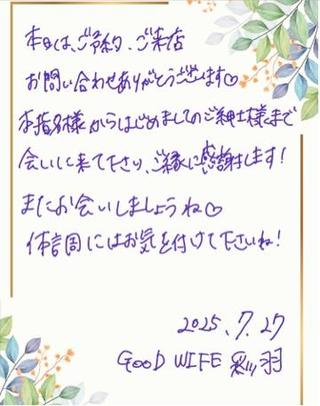 本日は、ご予約、ご来店
お問い合わせありがとうございます♡
本指名様からはじめましてのご紳士様まで
会いに来て下さり、ご縁に感謝します!
またお会いしましょうね♡
体調にはお気を付けて下さいね!
2025.7.27
GOOD WIFE 彩羽